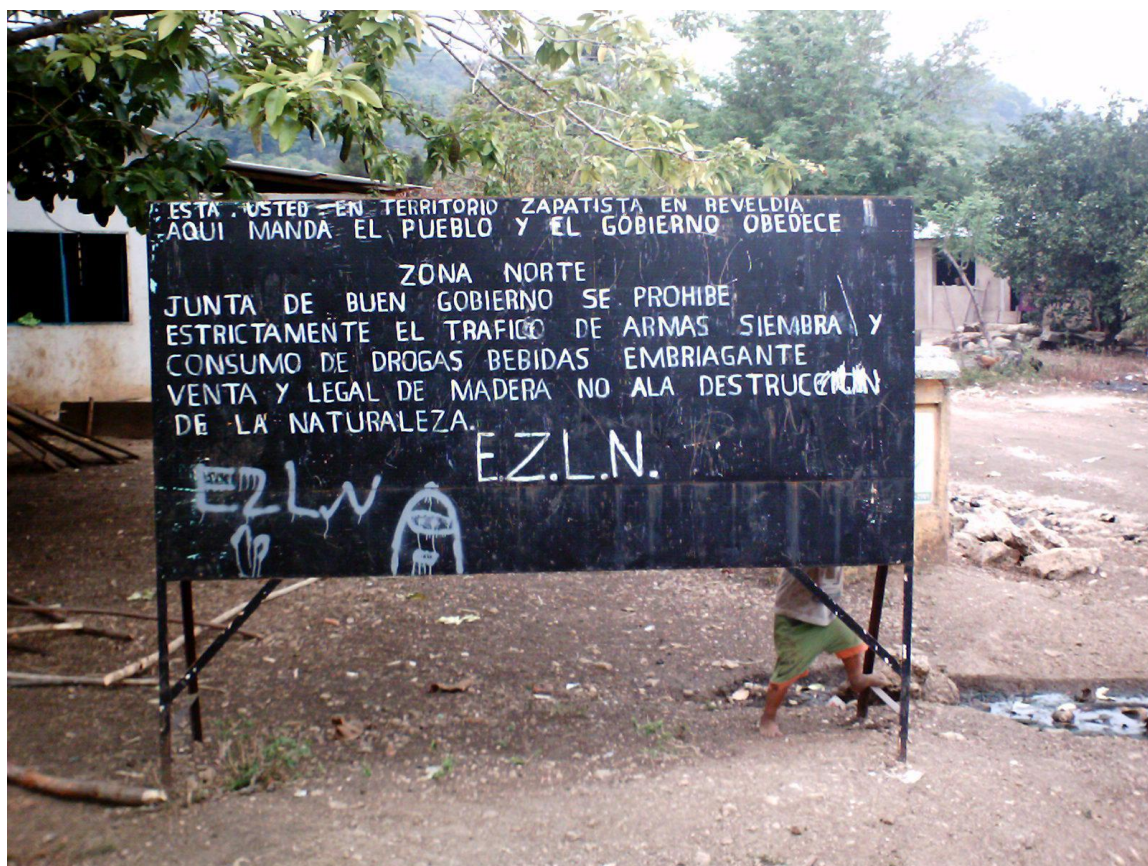 ESTA . USTED - EN TERRITORIO ZAPATISTA EN REVELDIA
AQUI MANDA EL PUEBLO Y EL GOBIERNO OBEDECE
ZONA NORTE
JUNTA DE BUEN GOBIERNO SE PROHIBE
ESTRICTAMENTE EL TRAFICO DE ARMAS SIEMBRA Y
CONSUMO DE DROGAS BEBIDAS EMBRIAGANTE
VENTA Y LEGAL DE MADERA NO ALA DESTRUCCION
DE LA NATURALEZA.
E.Z.L.N.
EZLN